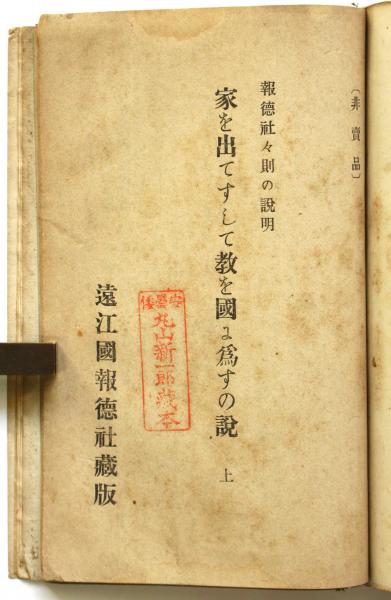 〔非賣品〕
報德社々則の說明
家を出てすして教を國に爲すの說 上
安曇倭
丸山新一郎藏本
遠江國報德社藏版